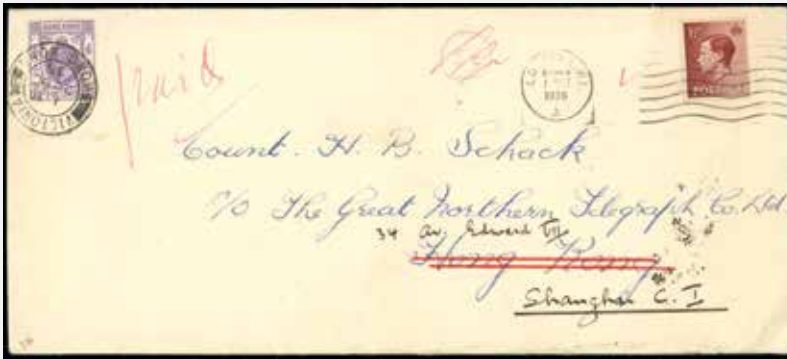 HONG KONG
VICTORIA
paid
1936
POSTAGE
Count. H. B. Schack
c/o The Great Northern Telegraph Co. Ltd.
34 Av. Edward VII
Hong Kong
Shanghai C. I